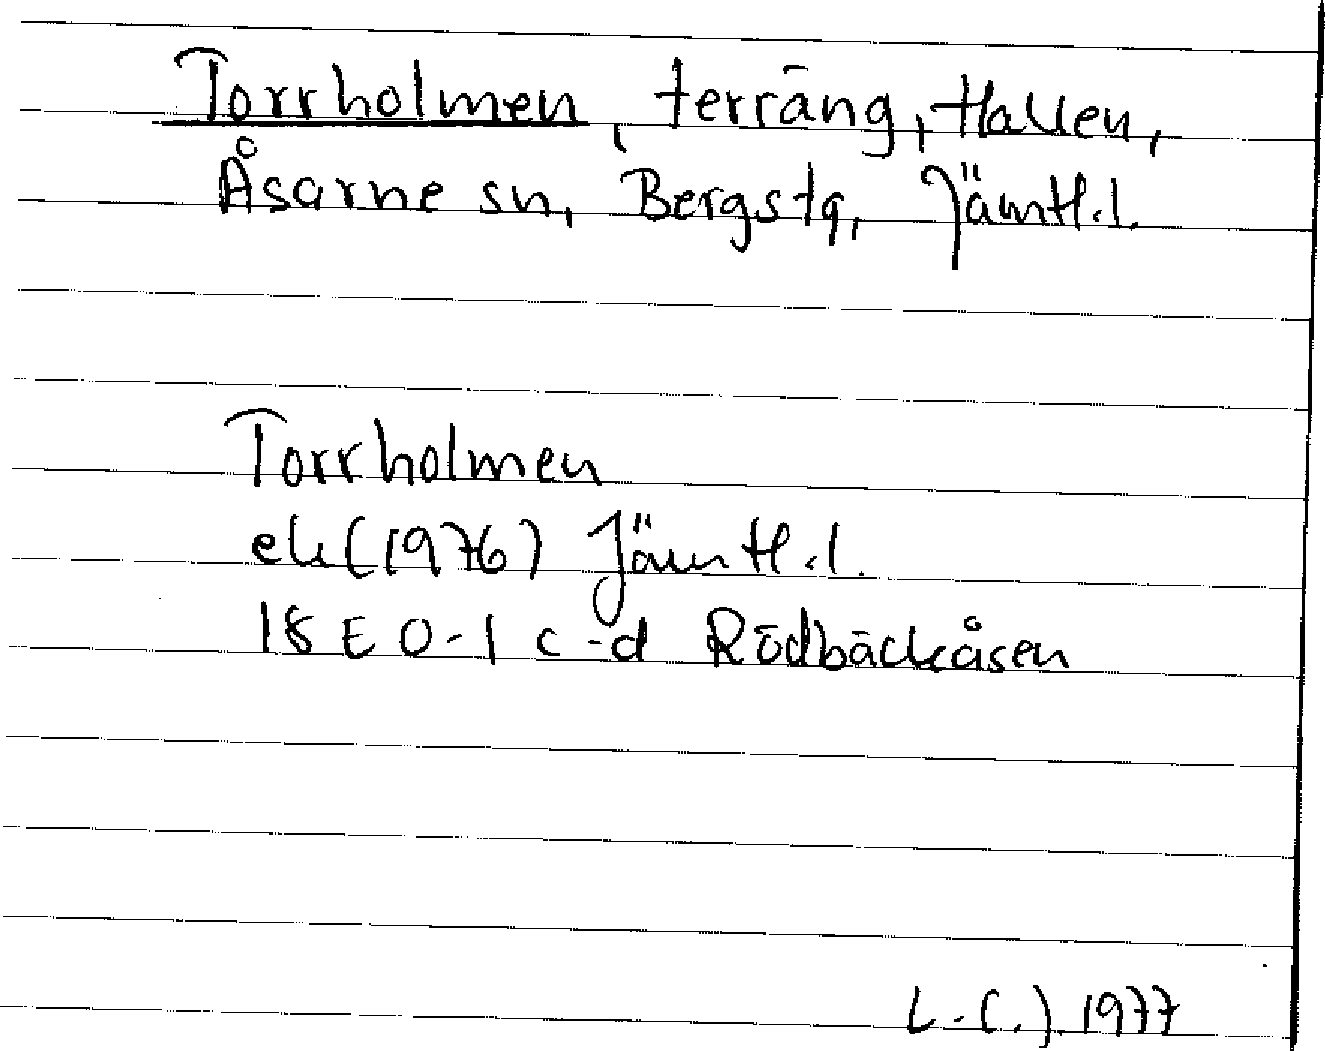 Torrholmen, terräng, Hallen,
Åsarne sn, Bergs tg, Jämtl.l.
Torrholmen
ek (1976) Jämtl.l.
18E 0-1 c-d Rödbäckåsen
L-C.J. 1977